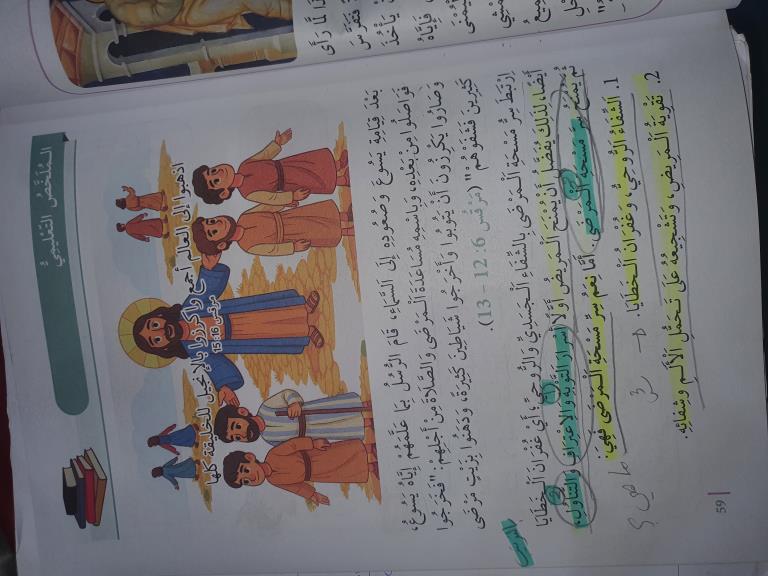 الْمُلَخَّصُ التَّعْلِيمِيُّ
اذهبوا إلى العالم أجمع واكرزوا بالإنجيل للخليقة كلها
مرقس 16: 15
بَعْدَ قِيَامَةِ يَسُوعَ وَصُعُودِهِ إِلَى السَّمَاءِ، قَامَ الرُّسُلُ بِمَا عَلَّمَهُمْ إِيَّاهُ يَسُوعُ،
فَوَاصَلُوا مِنْ بَعْدِهِ، وَبِاسْمِهِ مُسَاعَدَةَ الْمَرْضَى وَالصَّلَاةَ مِنْ أَجْلِهِمْ: "فَخَرَجُوا
وَصَارُوا يَكْرِزُونَ أَنْ يَتُوبُوا وَأَخْرَجُوا شَيَاطِينَ كَثِيرَةً، وَدَهَنُوا بِزَيْتٍ مَرْضَى
كَثِيرِينَ فَشَفَوْهُمْ" (مَرْقُس 6: 12 – 13).
اِرْتَبَطَ سِرُّ مَسْحَةِ الْمَرْضَى بِالشِّفَاءِ الْجَسَدِيِّ وَالرُّوحِيِّ؛ أَيْ غُفْرَانَ الْخَطَايَا
أَيْضًا، لِذَلِكَ يُفَضَّلُ أَنْ يُمْنَحَ الْمَرِيضُ أَوَّلًا أَسْرَارَ التَّوْبَةِ وَالِاعْتِرَافِ وَالتَّنَاوُلِ،
ثُمَّ يُمْنَحُ سِرَّ مَسْحَةِ الْمَرْضَى. أَمَّا نِعَمُ سِرِّ مَسْحَةِ الْمَرْضَى فَهِيَ:
1. الشِّفَاءُ الرُّوحِيُّ، وَغُفْرَانُ الْخَطَايَا.
2. تَقْوِيَةُ الْمَرِيضِ، وَتَشْجِيعُهُ عَلَى تَحَمُّلِ الْأَلَمِ وشفائِهِ.
ما هي ؟
59